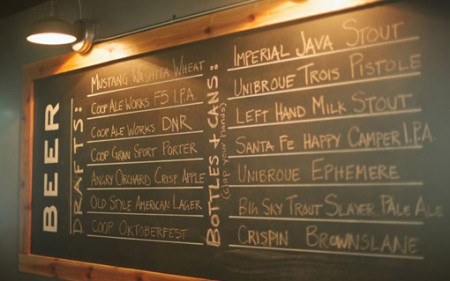 BEER
DRAFTS:
MUSTANG WASHITA WHEAT
COOP ALE WORKS F5 I.P.A.
COOP ALE WORKS DNR
COOP GRAN SPORT PORTER
ANGRY ORCHARD CRISP APPLE
OLD STYLE AMERICAN LAGER
COOP OKTOBERFEST
BOTTLES + CANS:
(clap your hands)
IMPERIAL JAVA STOUT
UNIBROUE TROIS PISTOLE
LEFT HAND MILK STOUT
SANTA FE HAPPY CAMPER I.P.A.
UNIBROUE EPHEMERE
BIG SKY TROUT SLAYER PALE ALE
CRISPIN BROWNSLANE